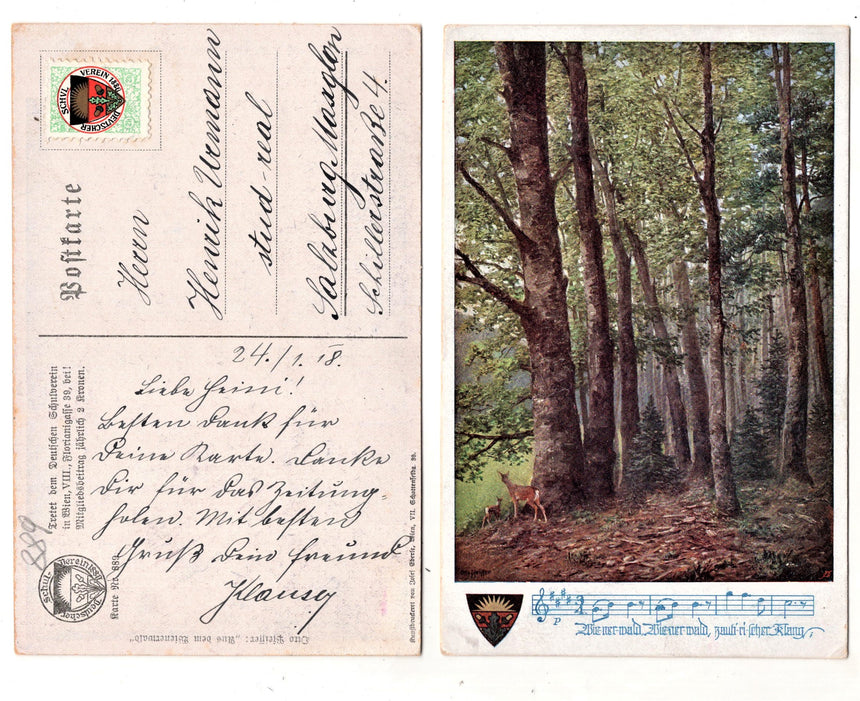 DEUTSCHER SCHULVEREIN 1880
Postkarte
Herrn
Henrik Urmann
stud-real
Salzburg Maxglan
Schillerstraße 4.
Tretet dem Deutschen Schulverein
in Wien, VIII., Florianigasse 39, bei!
Mitgliedsbeitrag jährlich 2 Kronen.
889
Deutscher Schul-Verein 1880
Karte Nr. 889
24./1. 18.
Liebe Heini!
Besten Dank für
Deine Karte. Danke
Dir für das Zeitung-
holen. Mit besten
Gruß Dein Freund
Otto Pfeiffer: „Aus dem Wienerwald“
Kunstdruckerei von Josef Eberle, Wien, VII. Schottenfeldg. 39.
p
Wie-ner-wald, Wie-ner wald, zaub-ri-scher Klang,